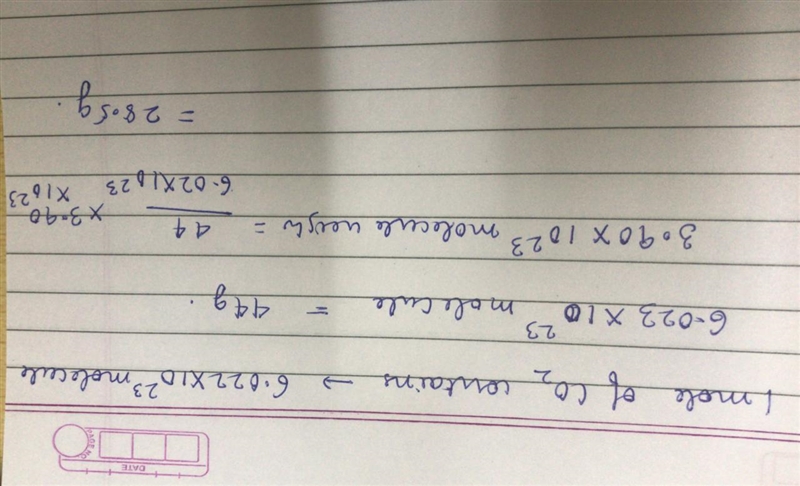 DATE
PAGE NO.
1 mole of CO2 contains → 6.022 X 10^23 molecule
6.023 X 10^23 molecule = 44g.
3.90 X 10^23 molecule weigh = 44 / 6.02 X 10^23 X 3.90 X 10^23
= 28.5g.